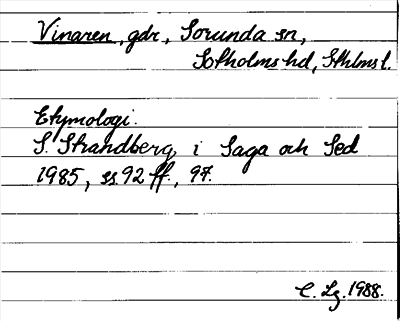 Vinaren, gdr, Sorunda sn,
Sotholms hd, Sthlms l.
Etymologi.
S. Strandberg i Saga och Sed
1985, ss. 92 ff., 97.
C. Lg. 1988.